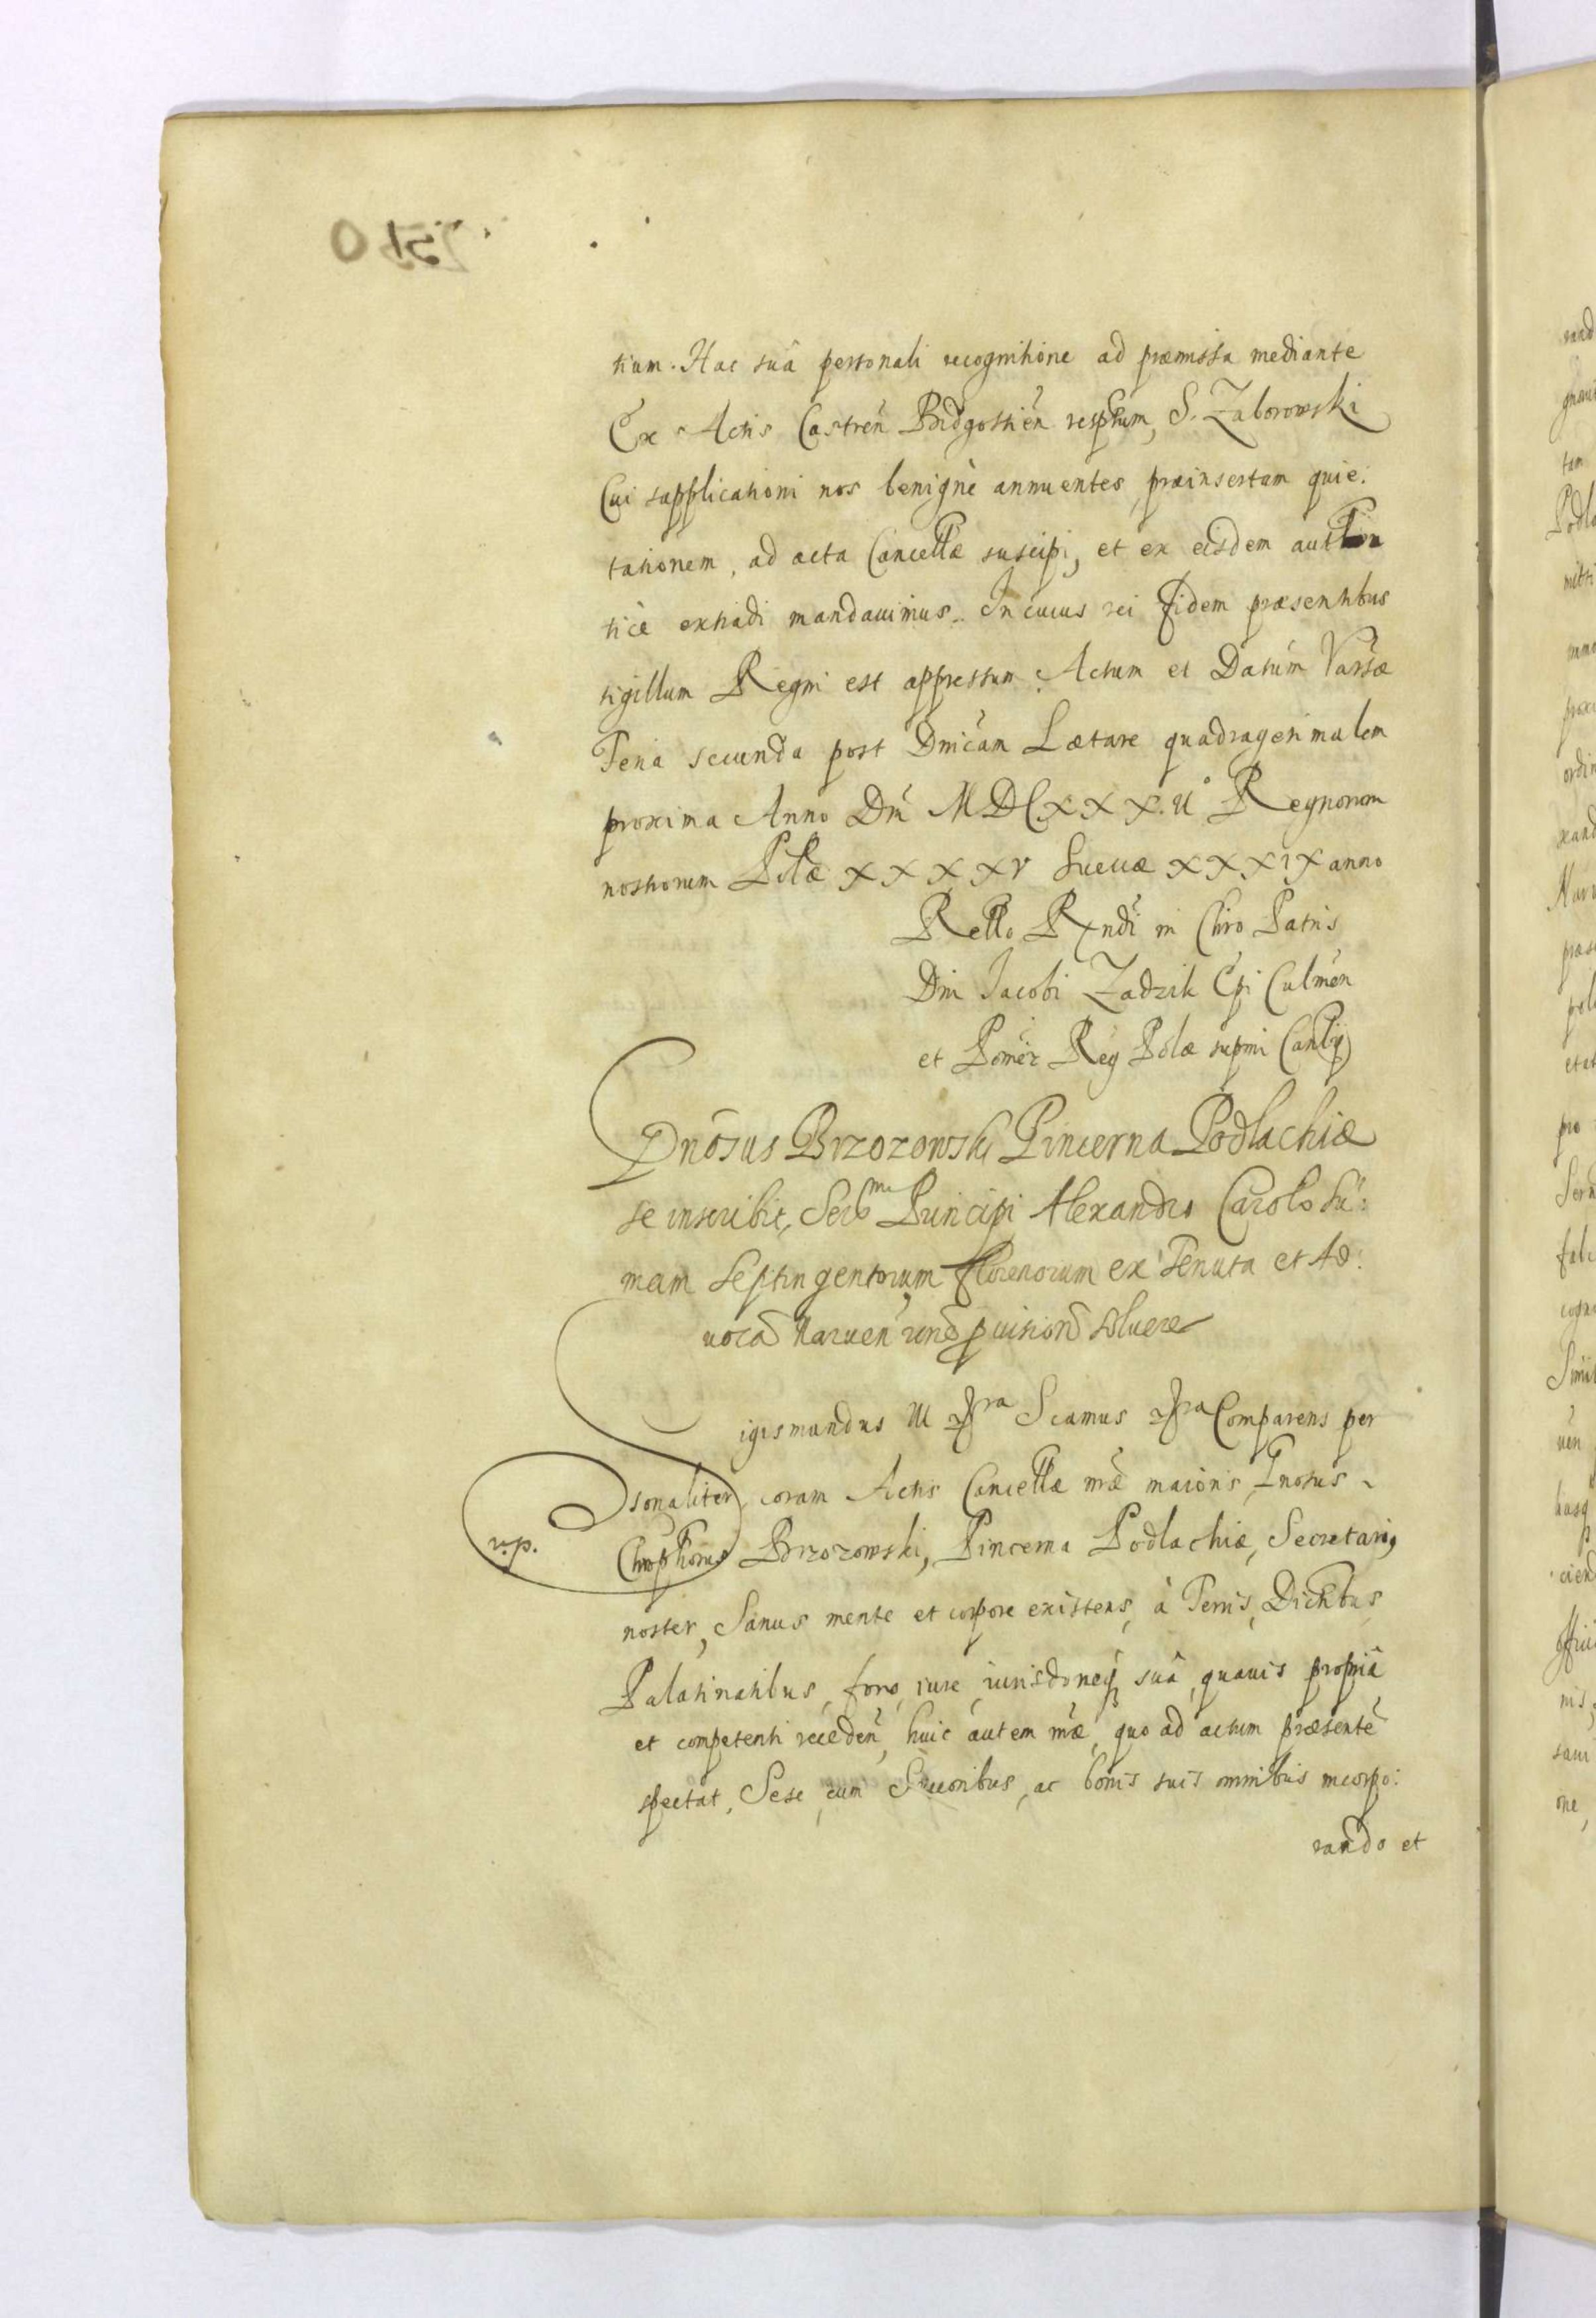 tium. Hac suâ personali recognitione ad præmissa mediante
Ex Actis Castren̄ Bidgostien̄ rescptum, S. Zaborowski
Cui supplicationi nos benignè annuentes, præinsertam quie:
tationem, ad acta Cancellæ suscipi, et ex eisdem authen
ticè extradi mandauimus. In cuius rei fidem præsentibus
sigillum Regni est appressum. Actum et Datum Varsæ
Feria secunda post Dnicam Lætare quadragesimalem
proxima Anno Dni MDCXXX.II° Regnorum
nostrorum Polæ XXXXV Sueuæ XXXIX anno
Rello Rndi in Chro Patris
Dni Jacobi Zadzik Epi Culmen
et Pomer Reg Polæ supmi Canlij
Gnosus Brzozowski Pincerna Podlachiæ
se inscribit, Sermo Principi Alexandro Carolo Su:
mam septingentorum florenorum ex Tenuta et Ad:
uoca Naruen soluere
Sigismundus III &ra Sciamus &ra Comparens per
sonaliter coram Actis Cancellæ nræ maioris, Gnosus
Chrophorus Brzozowski, Pincerna Podlachiæ, Secretarius
noster, Sanus mente et corpore existens, à Terris, Dictibus
Palatinatibus, foro, iure, iurisdoneq suâ, quauis propriâ
et competenti receden̄, huic autem nræ, quo ad actum præsente
spectat, Sese, cum Sucoribus, ac bonis suis omnibus incorpo:
rando et